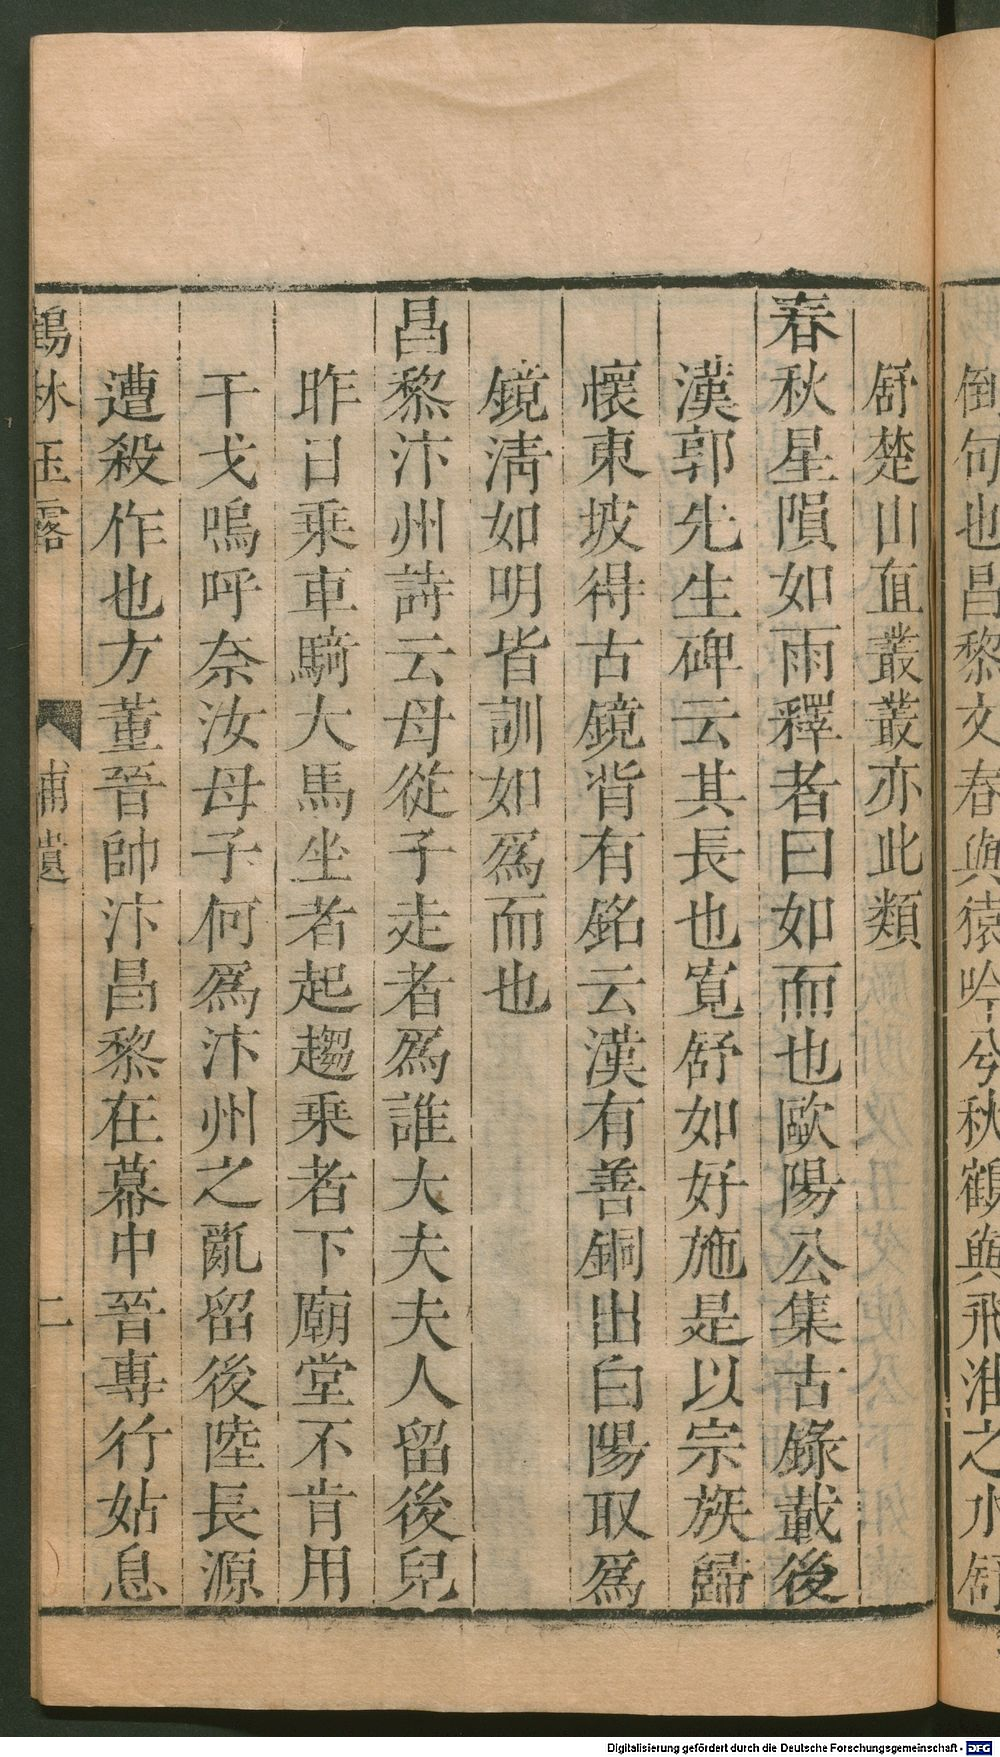 倒句也昌黎文春與猿吟兮秋鶴與飛淮之水舒
舒楚山直叢叢亦此類
春秋星隕如雨釋者曰如而也歐陽公集古錄載後
漢郭先生碑云其長也寬舒如好施是以宗族歸
懷東坡得古鏡背有銘云漢有善銅出白陽取爲
鏡淸如明皆訓如爲而也
昌黎汴州詩云母從子走者爲誰大夫夫人留後兒
昨日乘車騎大馬坐者起趨乘者下廟堂不肯用
干戈嗚呼奈汝母子何爲汴州之亂留後陸長源
遭殺作也方董晉帥汴昌黎在幕中晉專行姑息
鶴林玉露 補遺 二
Digitalisierung gefördert durch die Deutsche Forschungsgemeinschaft - DFG